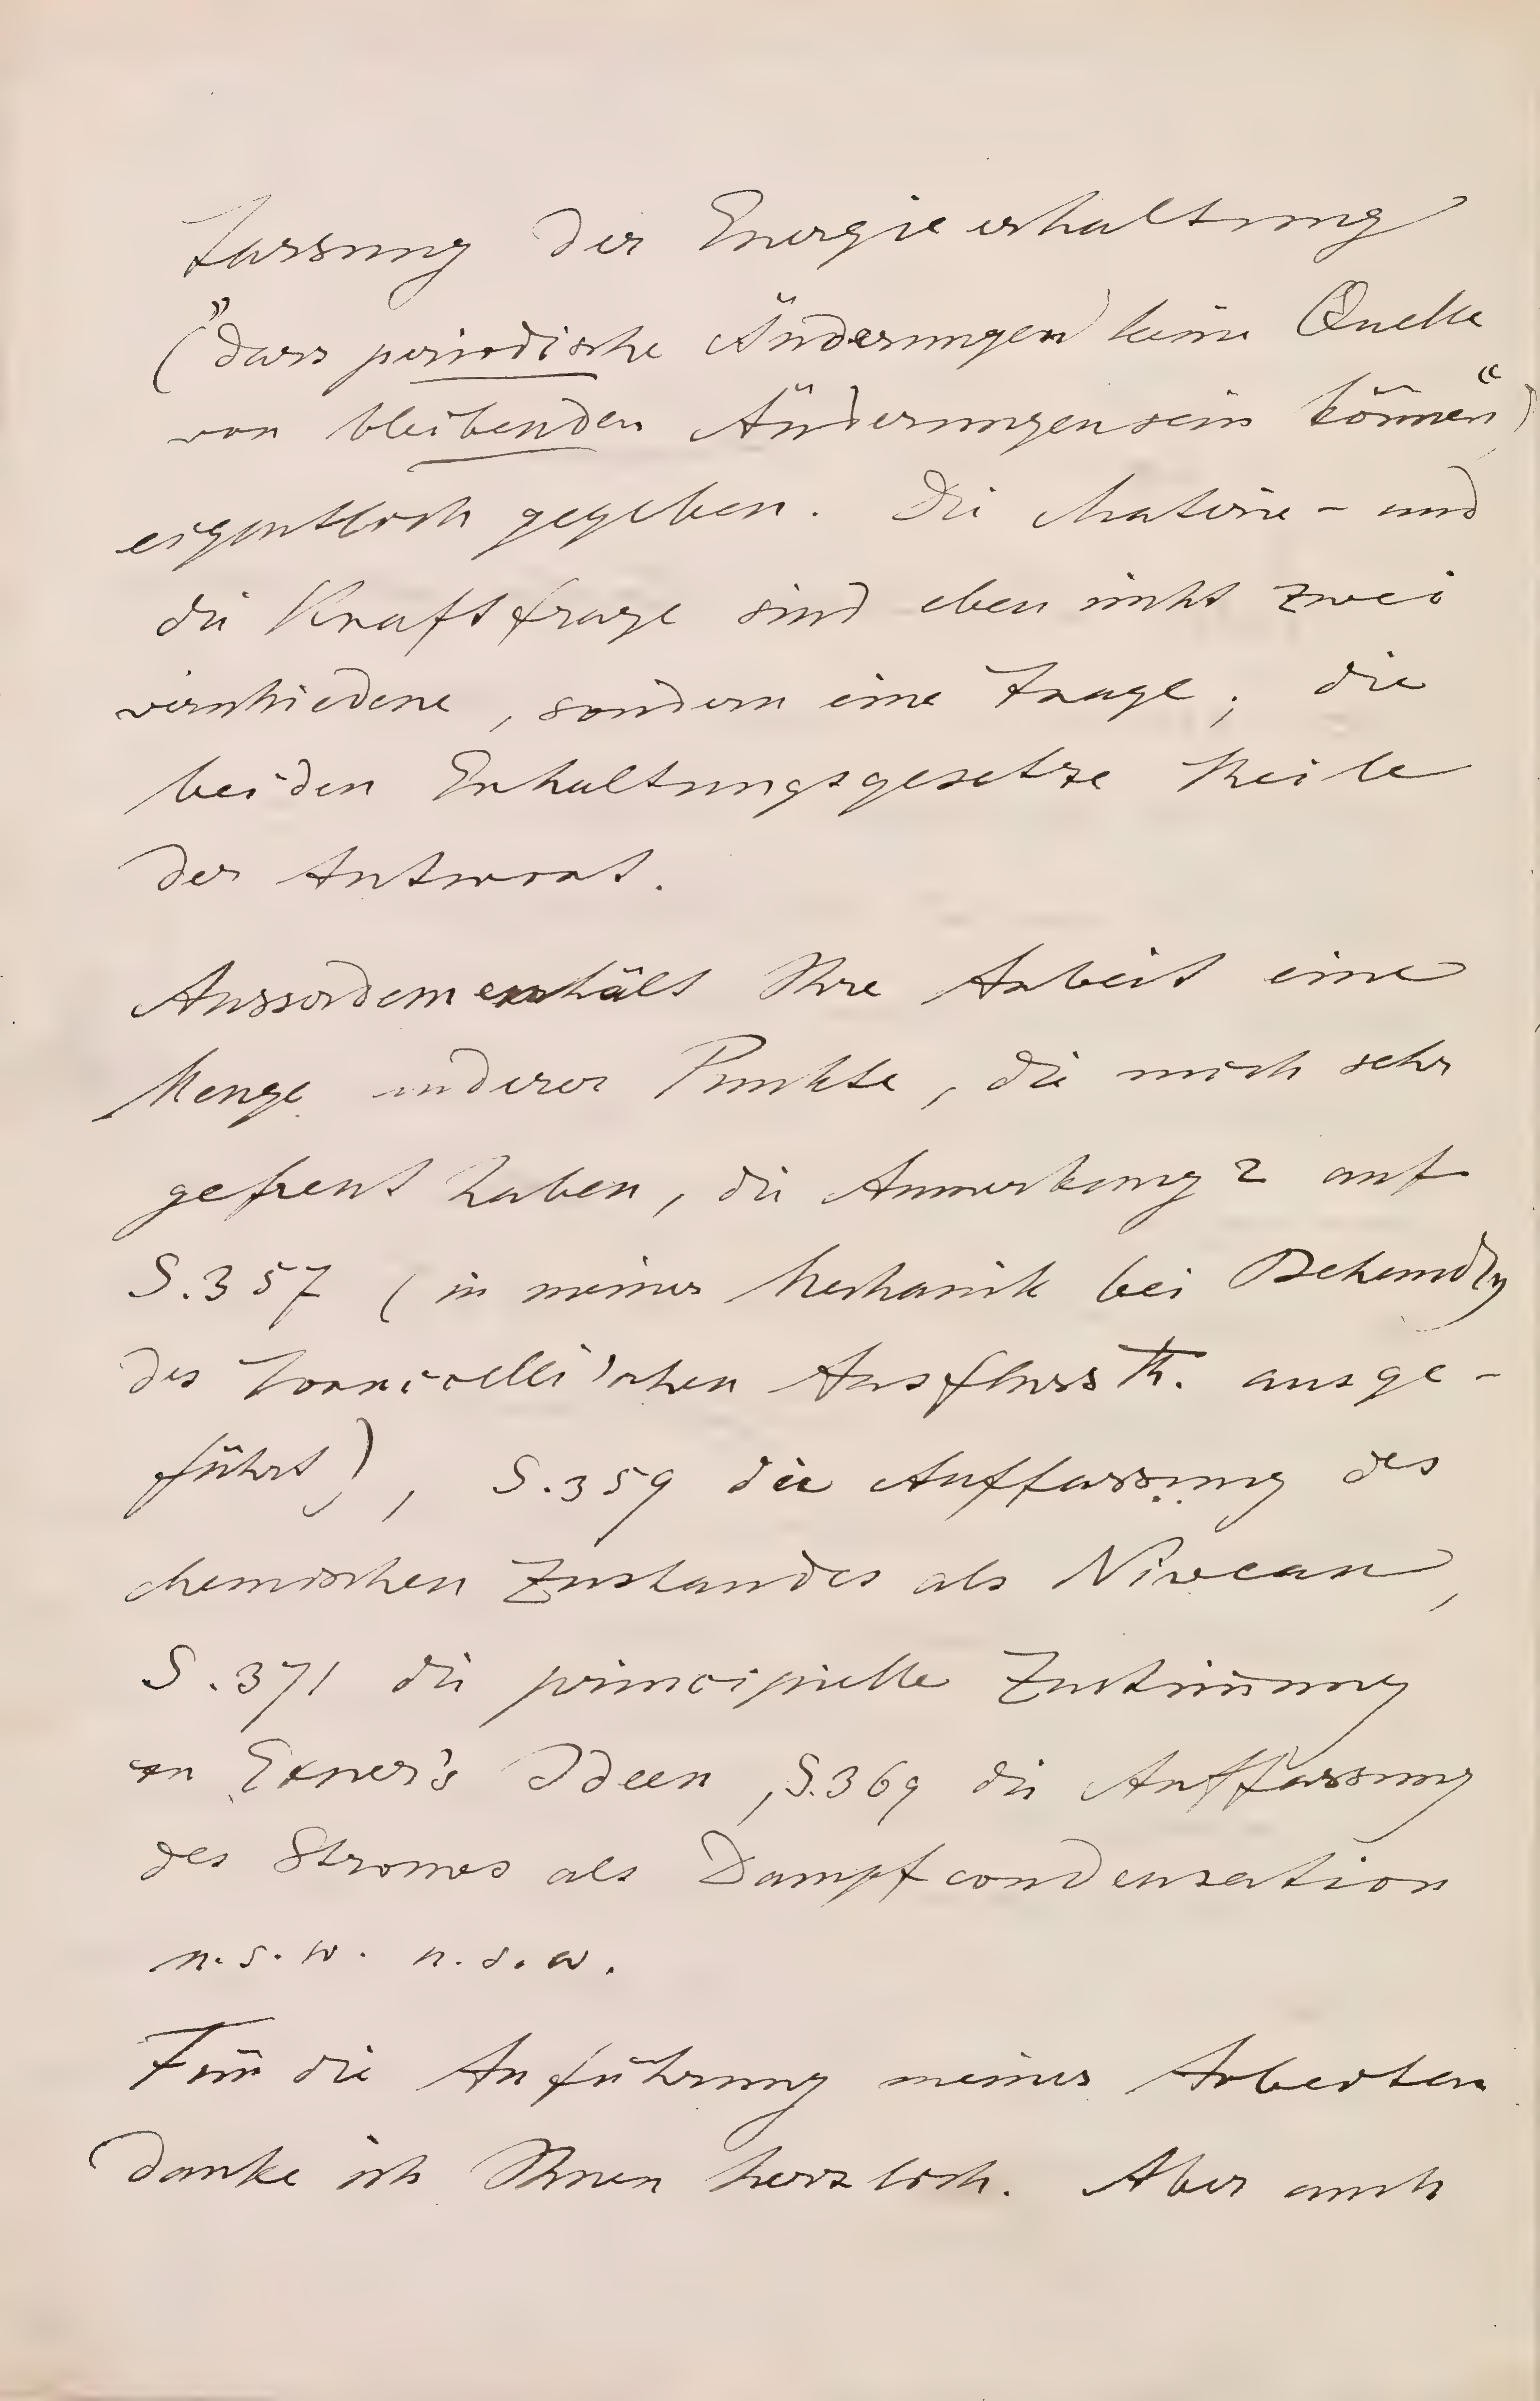 fassung der Energieerhaltung
(„dass periodische Änderungen keine Quelle
von bleibenden Änderungen sein können“)
eigentlich gegeben. Die Materie- und
die Kraftfrage sind eben nicht zwei
verschiedene, sondern eine Frage; die
beiden Erhaltungsgesetze Theile
der Antwort.
Ausserdem enthält Ihre Arbeit eine
Menge anderer Punkte, die mich sehr
gefreut haben, die Anmerkung 2 auf
S. 357 (in meiner Mechanik bei Behandlg
des Torricelli'schen Ausfluss Th. ausge-
führt), S. 359 die Auffassung des
chemischen Zustandes als Niveau,
S. 371 die principielle Zustim̄ung
an Exner's Ideen, S. 369 die Auffassung
des Stromes als Dampfcondensation
u. s. w. u. s. w.
Für die Anführung meiner Arbeiten
danke ich Ihnen herzlich. Aber auch